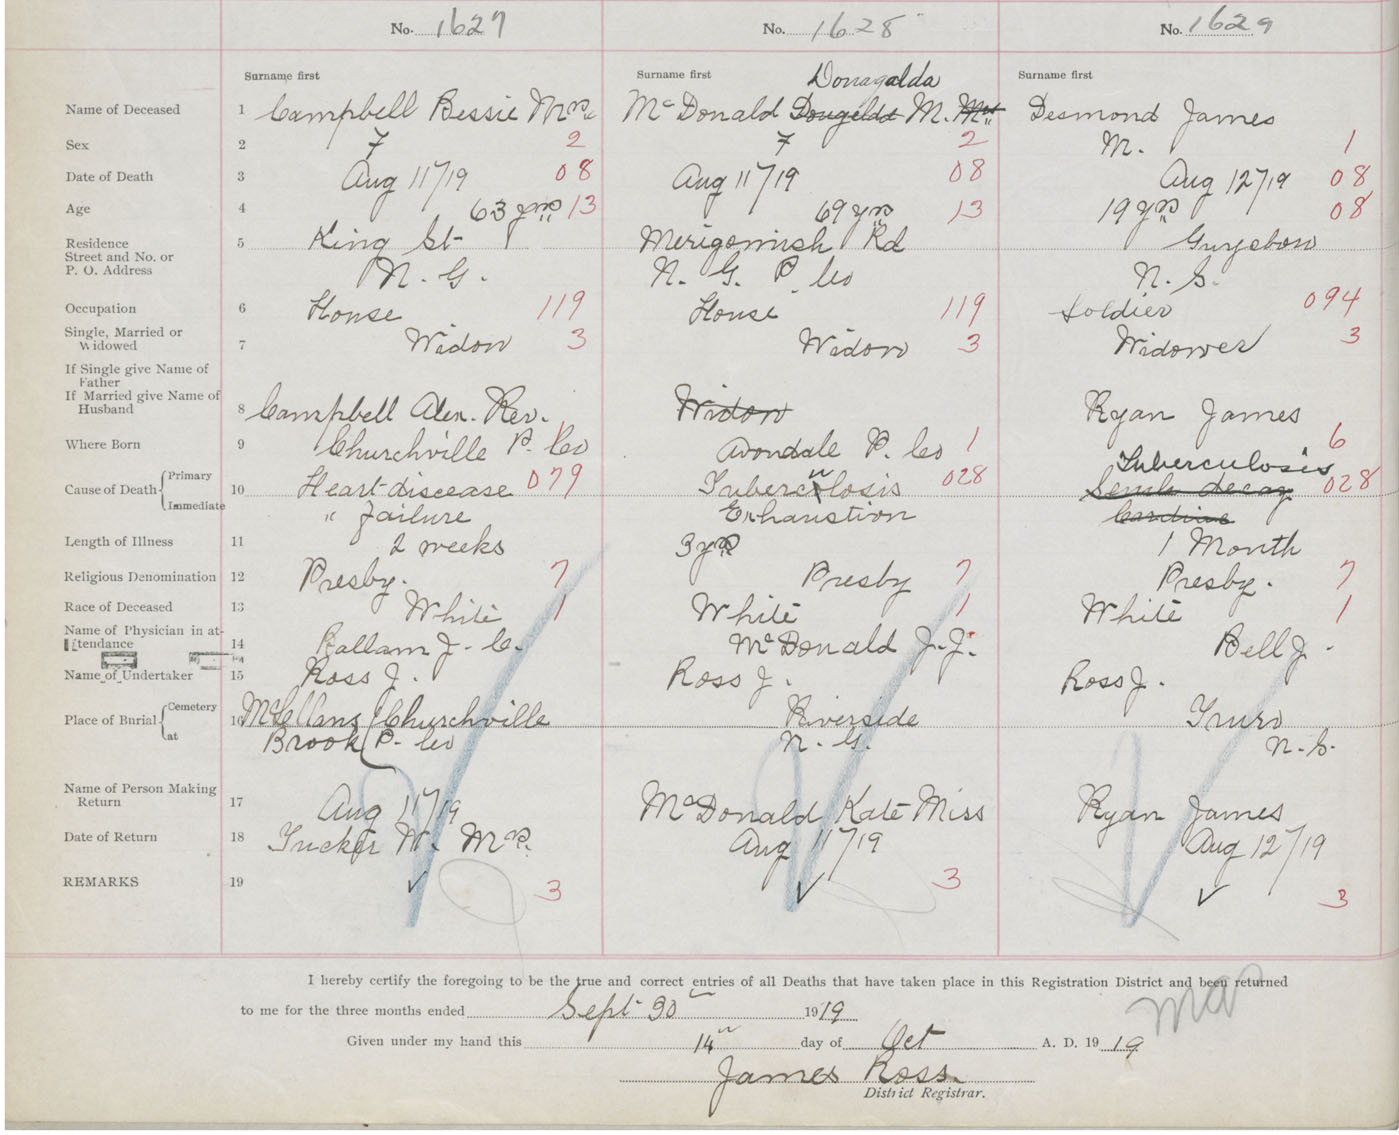 No. 1627 No. 1628 No. 1629
Surname first Surname first Donagalda Surname first
Name of Deceased 1 Campbell Bessie Mrs. McDonald Dougelda M. Mrs. Desmond James
Sex 2 F 2 F 2 M. 1
Date of Death 3 Aug 11"/19 08 Aug 11"/19 08 Aug 12"/19 08
Age 4 63 yrs 13 69 yrs 13 19 yrs 08
Residence 5 King St Merigomish Rd Guysboro
Street and No. or
P. O. Address N. G. N. G. P. Co N. S.
Occupation 6 House 119 House 119 Soldier 094
Single, Married or
Widowed 7 Widow 3 Widow 3 Widower 3
If Single give Name of
Father
If Married give Name of
Husband 8 Campbell Alex. Rev. Widow Ryan James
Where Born 9 Churchville P. Co Avondale P. Co 1 6
Tuberculosis
Cause of Death { Primary 10 Heart disease 079 Tuberculosis 028 Senile decay 028
Immediate " Failure Exhaustion Cardiac
Length of Illness 11 2 weeks 3 yrs 1 Month
Religious Denomination 12 Presby. 7 Presby 7 Presby. 7
Race of Deceased 13 White 1 White 1 White 1
Name of Physician in at-
tendance 14 Ballam J. C. McDonald J. J. Bell J.
Name of Undertaker 15 Ross J. Ross J. Ross J.
Place of Burial { Cemetery 16 McLellans Churchville Riverside Truro
at Brook P. Co N. G. N. S.
Name of Person Making
Return 17 Aug 11"/19 McDonald Kate Miss Ryan James
Date of Return 18 Tucker W. Mrs. Aug 11"/19 Aug 12"/19
REMARKS 19 ✓ 3 ✓ 3 ✓ 3
I hereby certify the foregoing to be the true and correct entries of all Deaths that have taken place in this Registration District and been returned
to me for the three months ended Sept 30" 1919
Given under my hand this 14" day of Oct A. D. 19 19
James Ross.
District Registrar.